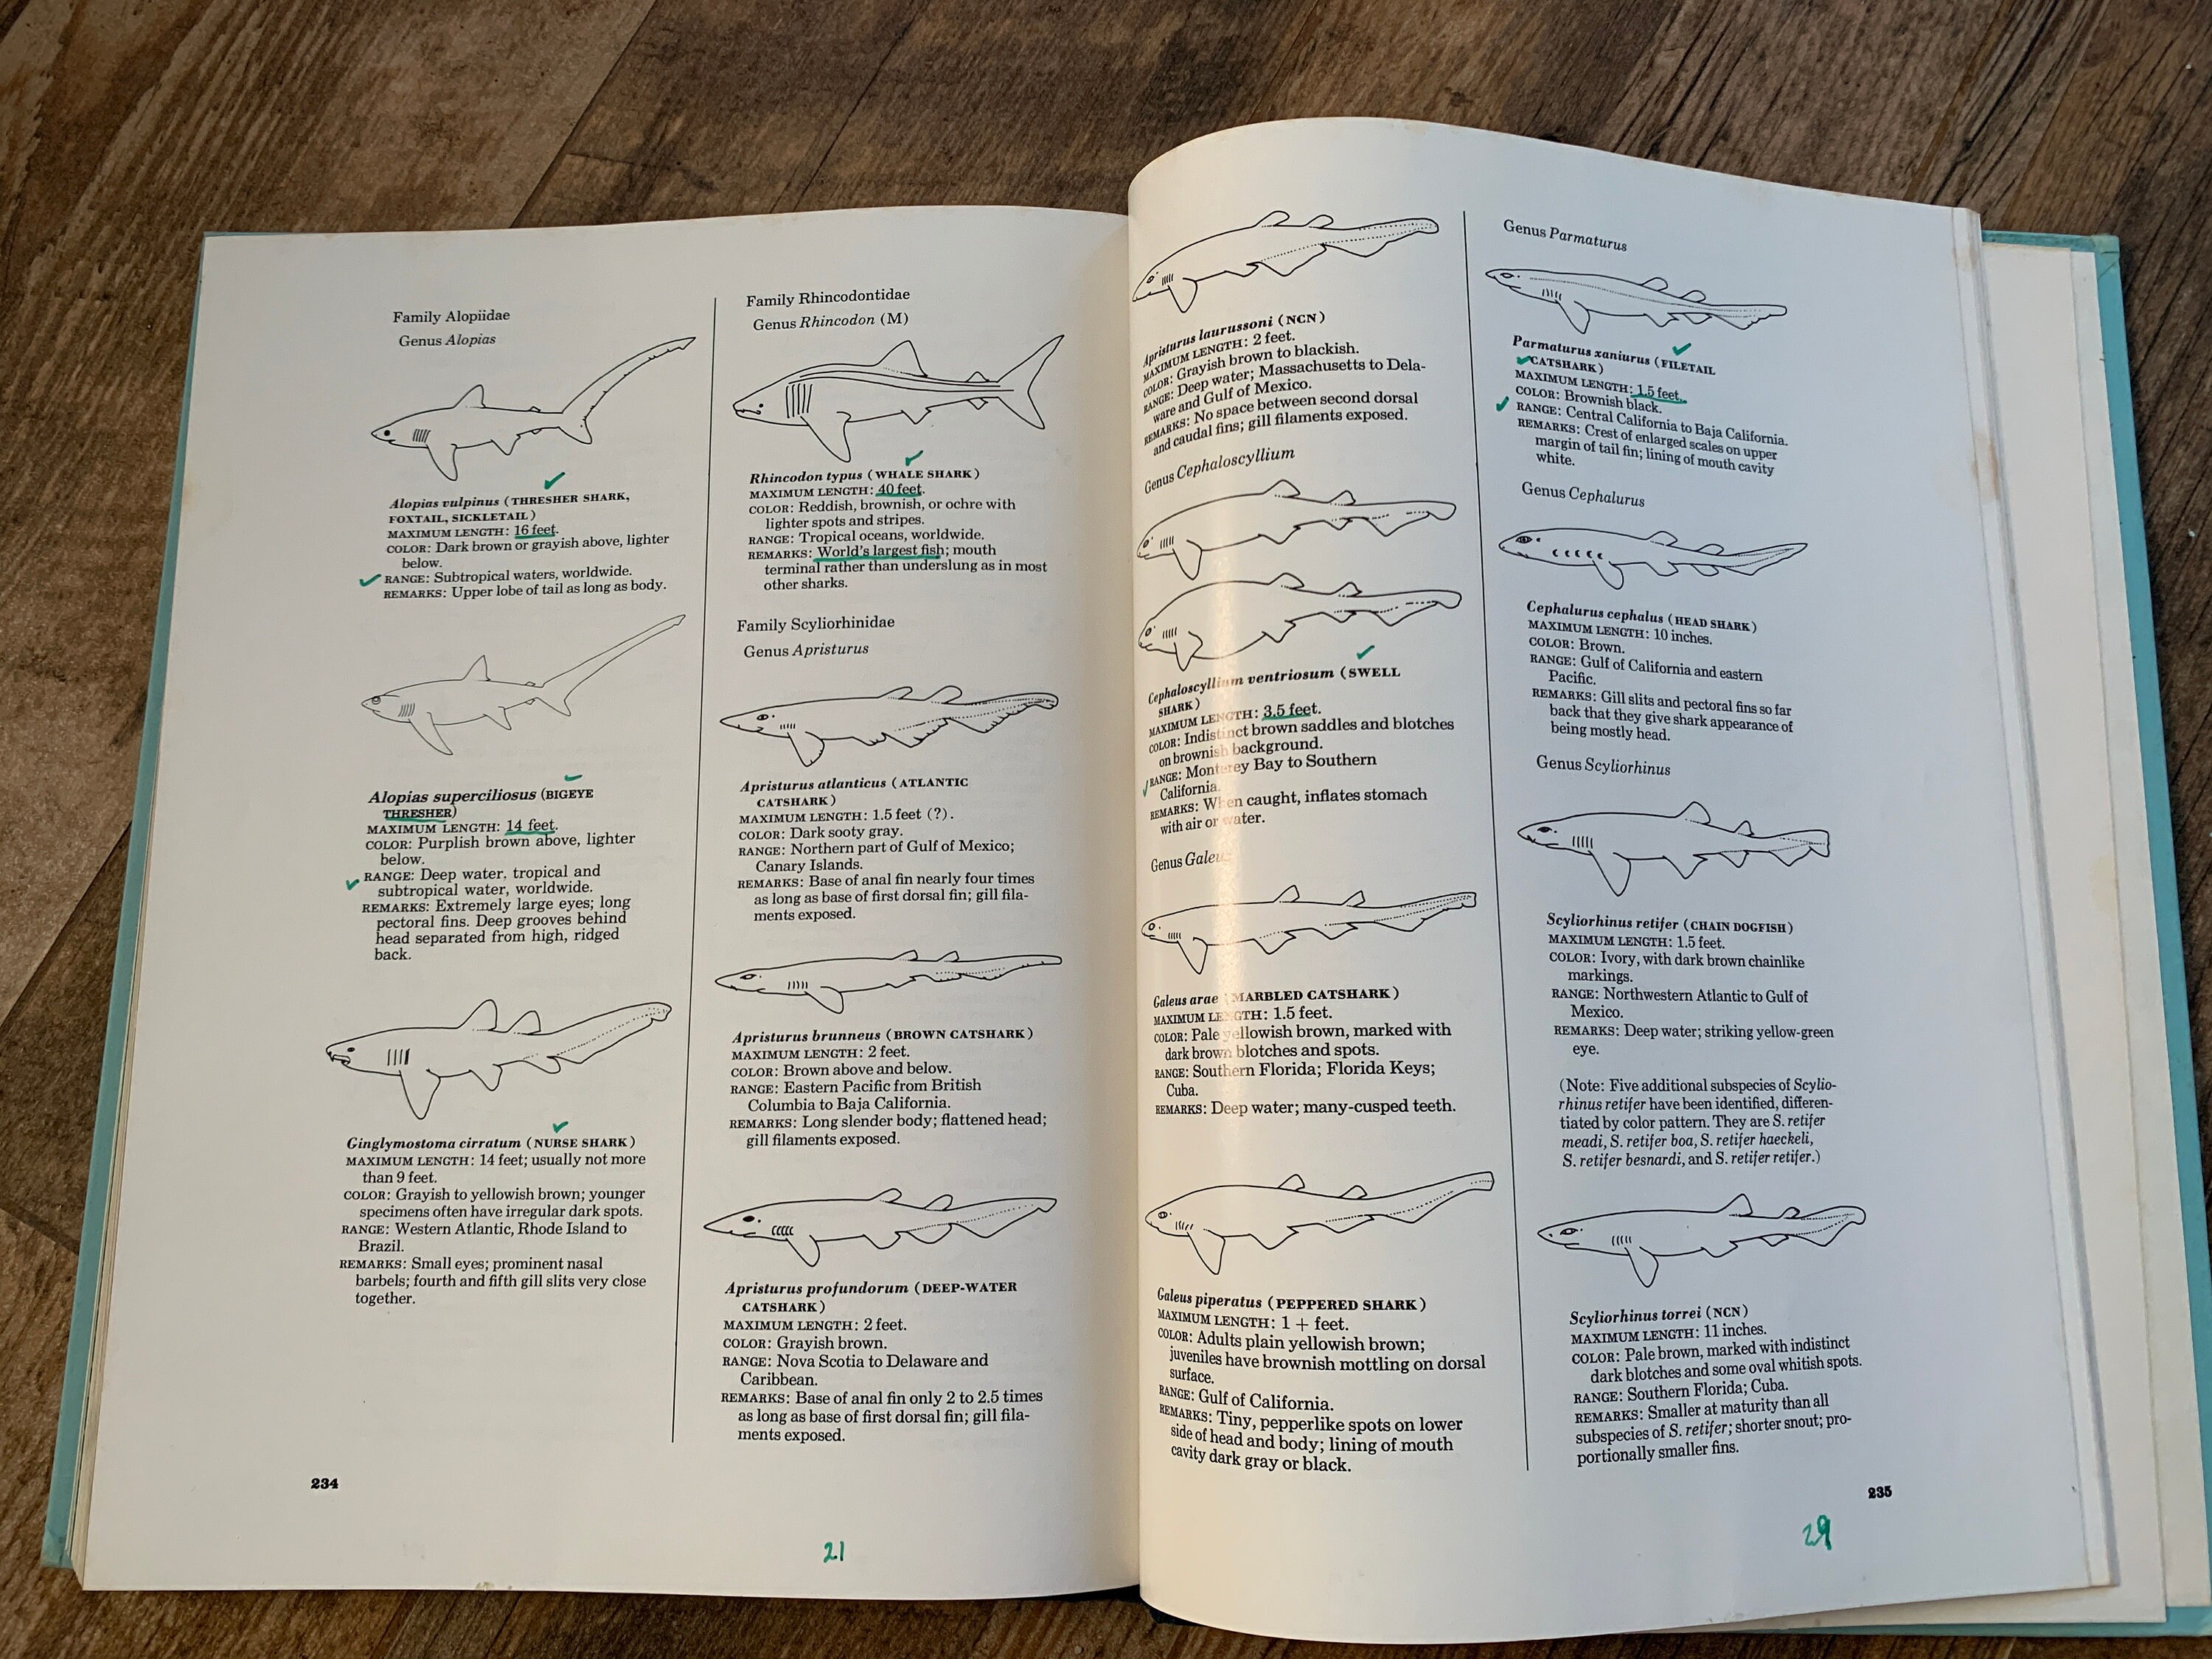 Family Alopiidae
Genus Alopias
Alopias vulpinus (THRESHER SHARK,
FOXTAIL, SICKLETAIL)
MAXIMUM LENGTH: 16 feet.
COLOR: Dark brown or grayish above, lighter
below.
RANGE: Subtropical waters, worldwide.
REMARKS: Upper lobe of tail as long as body.
Alopias superciliosus (BIGEYE
THRESHER)
MAXIMUM LENGTH: 14 feet.
COLOR: Purplish brown above, lighter
below.
RANGE: Deep water, tropical and
subtropical water, worldwide.
REMARKS: Extremely large eyes; long
pectoral fins. Deep grooves behind
head separated from high, ridged
back.
Ginglymostoma cirratum (NURSE SHARK)
MAXIMUM LENGTH: 14 feet; usually not more
than 9 feet.
COLOR: Grayish to yellowish brown; younger
specimens often have irregular dark spots.
RANGE: Western Atlantic, Rhode Island to
Brazil.
REMARKS: Small eyes; prominent nasal
barbels; fourth and fifth gill slits very close
together.
234
Family Rhincodontidae
Genus Rhincodon (M)
Rhincodon typus (WHALE SHARK)
MAXIMUM LENGTH: 40 feet.
COLOR: Reddish, brownish, or ochre with
lighter spots and stripes.
RANGE: Tropical oceans, worldwide.
REMARKS: World's largest fish; mouth
terminal rather than underslung as in most
other sharks.
Family Scyliorhinidae
Genus Apristurus
Apristurus atlanticus (ATLANTIC
CATSHARK)
MAXIMUM LENGTH: 1.5 feet (?).
COLOR: Dark sooty gray.
RANGE: Northern part of Gulf of Mexico;
Canary Islands.
REMARKS: Base of anal fin nearly four times
as long as base of first dorsal fin; gill fila-
ments exposed.
Apristurus brunneus (BROWN CATSHARK)
MAXIMUM LENGTH: 2 feet.
COLOR: Brown above and below.
RANGE: Eastern Pacific from British
Columbia to Baja California.
REMARKS: Long slender body; flattened head;
gill filaments exposed.
Apristurus profundorum (DEEP-WATER
CATSHARK)
MAXIMUM LENGTH: 2 feet.
COLOR: Grayish brown.
RANGE: Nova Scotia to Delaware and
Caribbean.
REMARKS: Base of anal fin only 2 to 2.5 times
as long as base of first dorsal fin; gill fila-
ments exposed.
21
Apristurus laurussoni (NCN)
MAXIMUM LENGTH: 2 feet.
COLOR: Grayish brown to blackish.
RANGE: Deep water; Massachusetts to Dela-
ware and Gulf of Mexico.
REMARKS: No space between second dorsal
and caudal fins; gill filaments exposed.
Genus Cephaloscyllium
Cephaloscyllium ventriosum (SWELL
SHARK)
MAXIMUM LENGTH: 3.5 feet.
COLOR: Indistinct brown saddles and blotches
on brownish background.
RANGE: Monterey Bay to Southern
California.
REMARKS: When caught, inflates stomach
with air or water.
Genus Galeus
Galeus arae (MARBLED CATSHARK)
MAXIMUM LENGTH: 1.5 feet.
COLOR: Pale yellowish brown, marked with
dark brown blotches and spots.
RANGE: Southern Florida; Florida Keys;
Cuba.
REMARKS: Deep water; many-cusped teeth.
Galeus piperatus (PEPPERED SHARK)
MAXIMUM LENGTH: 1 + feet.
COLOR: Adults plain yellowish brown;
juveniles have brownish mottling on dorsal
surface.
RANGE: Gulf of California.
REMARKS: Tiny, pepperlike spots on lower
side of head and body; lining of mouth
cavity dark gray or black.
Genus Parmaturus
Parmaturus xaniurus (FILETAIL
CATSHARK)
MAXIMUM LENGTH: 1.5 feet.
COLOR: Brownish black.
RANGE: Central California to Baja California.
REMARKS: Crest of enlarged scales on upper
margin of tail fin; lining of mouth cavity
white.
Genus Cephalurus
Cephalurus cephalus (HEAD SHARK)
MAXIMUM LENGTH: 10 inches.
COLOR: Brown.
RANGE: Gulf of California and eastern
Pacific.
REMARKS: Gill slits and pectoral fins so far
back that they give shark appearance of
being mostly head.
Genus Scyliorhinus
Scyliorhinus retifer (CHAIN DOGFISH)
MAXIMUM LENGTH: 1.5 feet.
COLOR: Ivory, with dark brown chainlike
markings.
RANGE: Northwestern Atlantic to Gulf of
Mexico.
REMARKS: Deep water; striking yellow-green
eye.
(Note: Five additional subspecies of Scylio-
rhinus retifer have been identified, differen-
tiated by color pattern. They are S. retifer
meadi, S. retifer boa, S. retifer haeckeli,
S. retifer besnardi, and S. retifer retifer.)
Scyliorhinus torrei (NCN)
MAXIMUM LENGTH: 11 inches.
COLOR: Pale brown, marked with indistinct
dark blotches and some oval whitish spots.
RANGE: Southern Florida; Cuba.
REMARKS: Smaller at maturity than all
subspecies of S. retifer; shorter snout; pro-
portionally smaller fins.
235
29